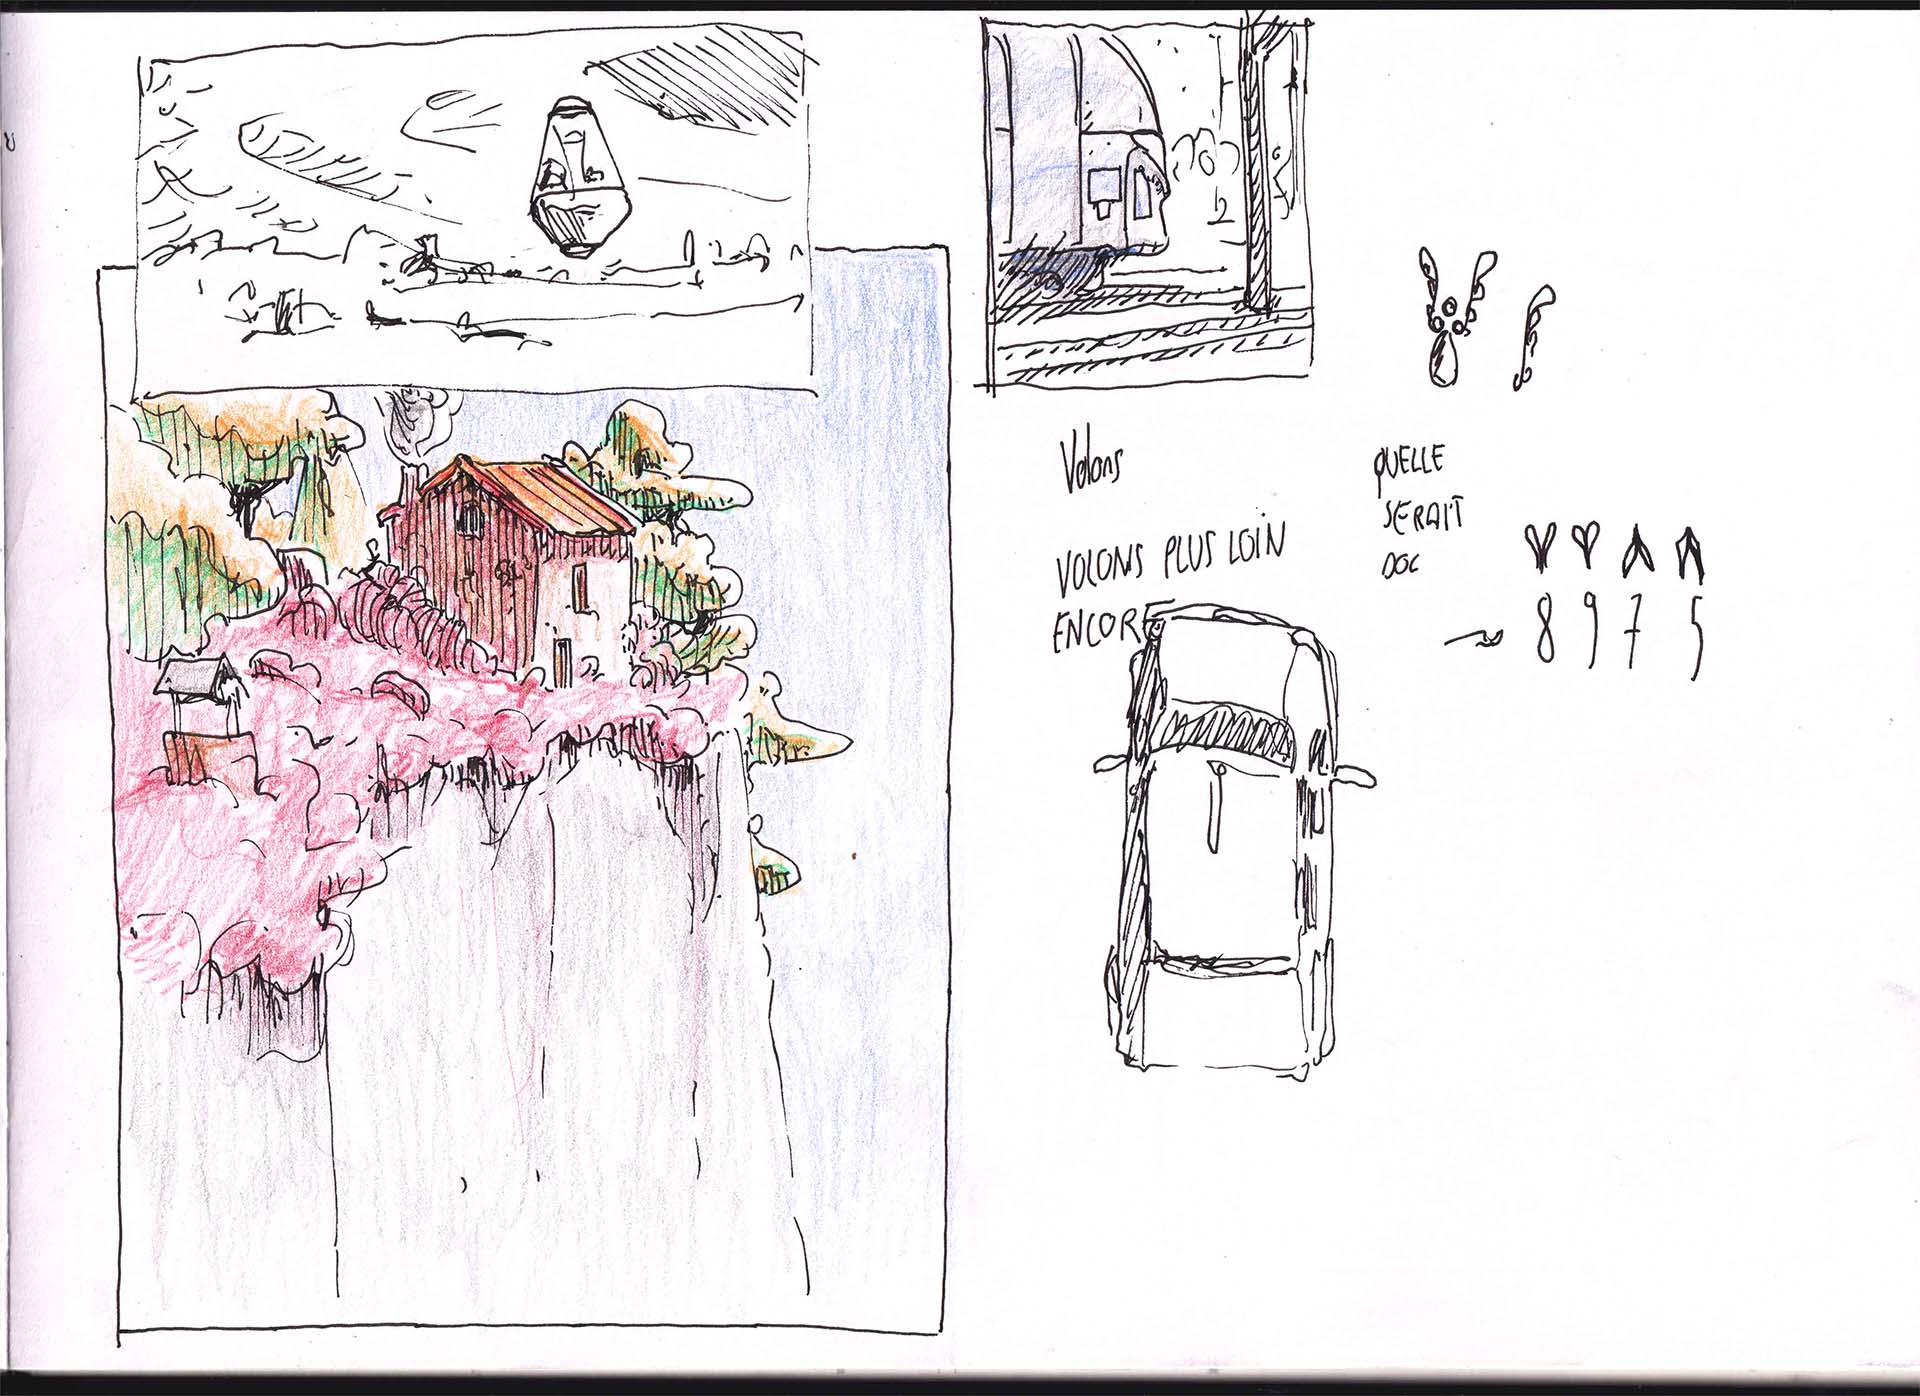 Volons
VOLONS PLUS LOIN
ENCORE
QUELLE
SERAIT
DOC
8 9 7 5